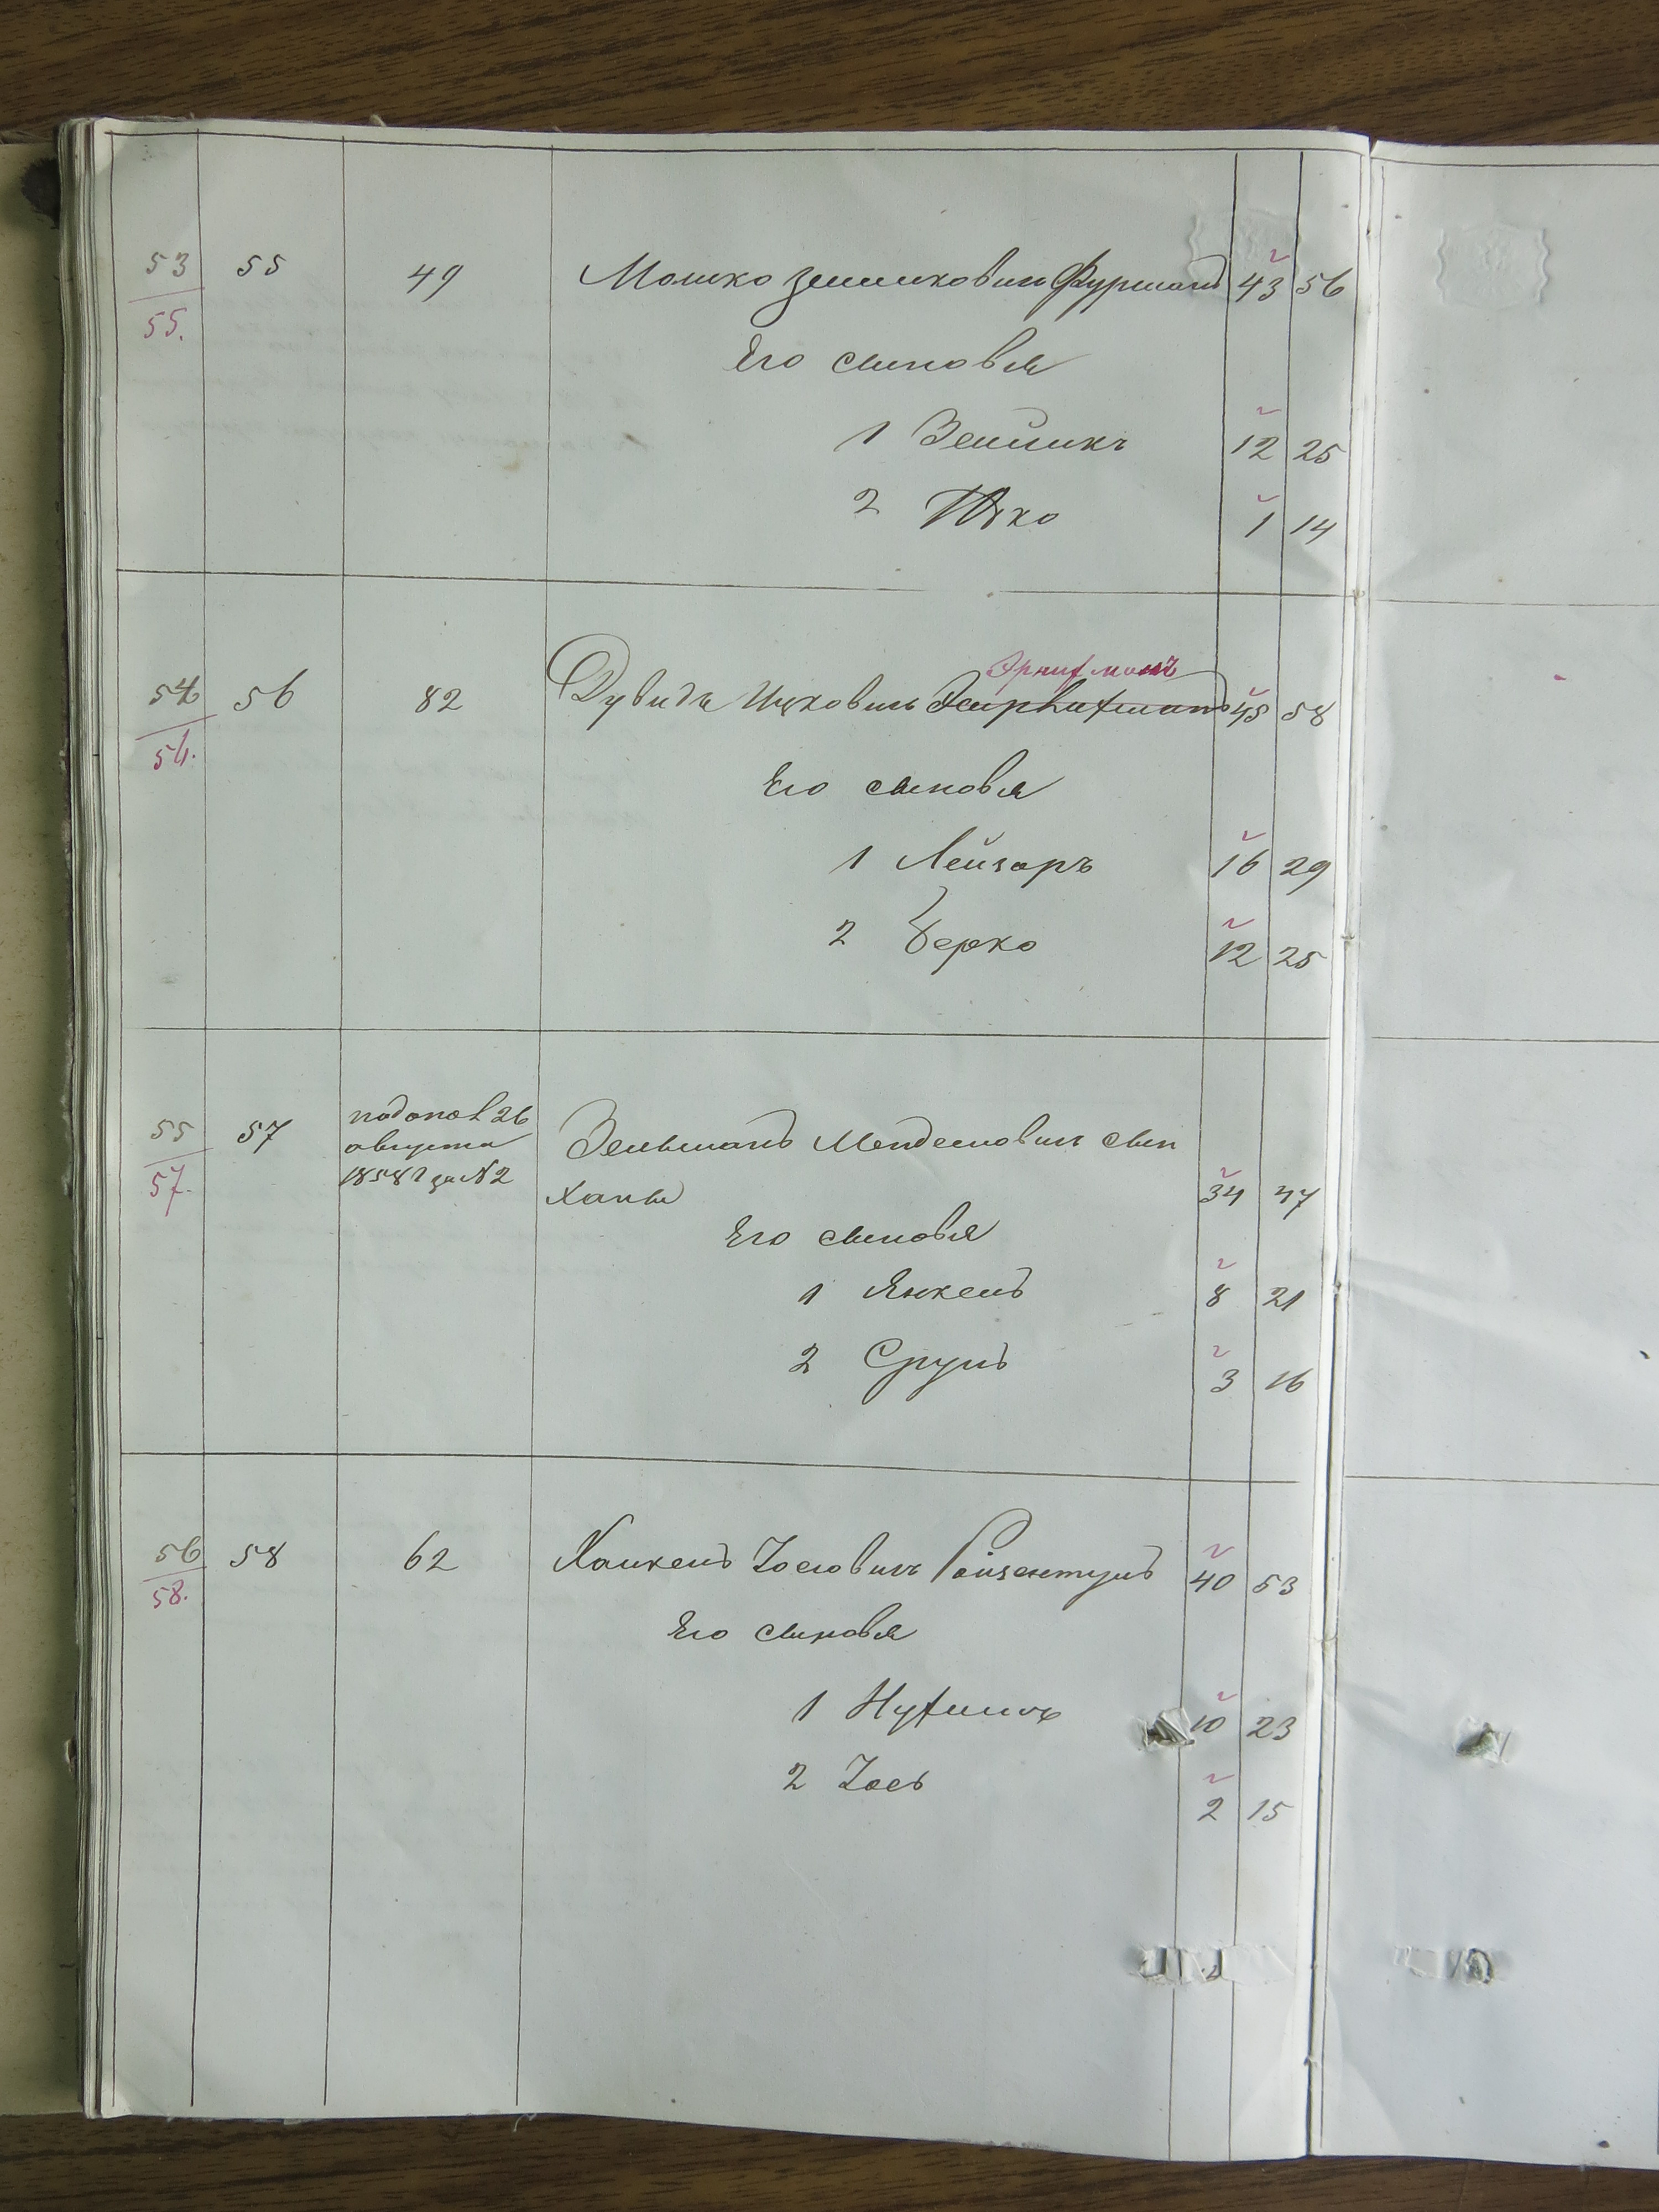 53 55 49 Мошко Зеликовичъ Фурманъ 43 56
55.
Его сыновья
1 Зейликъ 12 25
2 Ицко 1 14
Эрлихманъ
54 56 82 Дувидъ Ицковичъ 45 58
56.
Его сыновья
1 Лейзаръ 16 29
2 Берко 12 25
55 57 26
августа
1858 г за №2
57.
Зельманъ Менделовичъ сын
Ханы 34 47
Его сыновья
1 Янкель 8 21
2 Сруль 3 16
56 58 62 Хаикель Іосіовичъ Ройзентуль 40 53
58.
Его сыновья
1 Нухимъ 10 23
2 Іось 2 15